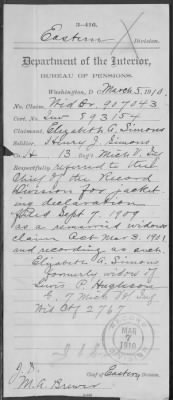 3-416.
Eastern Division.
Department of the Interior,
BUREAU OF PENSIONS.
Washington, D. C. March 5, 1910.
No. Claim, Wid Or. 907043
Cert. No. Inv 893154
Claimant, Elizabeth A. Simons
Soldier, Henry J. Simons
Co. A 13 Reg't Mich V. Inf
Respectfully referred to the
Chief of the Record
Division for jacket
ing declaration
filed Sept 7, 1909
as a remarried widows
claim Act Mar 3, 1901
and recording as such.
Elizabeth A. Simons
formerly widow of
Lewis P. Hughson
G. 7 Mich V Inf
Wid Ctf 2767
RECORD
MAR
7
1910
DIVISION
Chief of Eastern Division.
M. A. Brewer